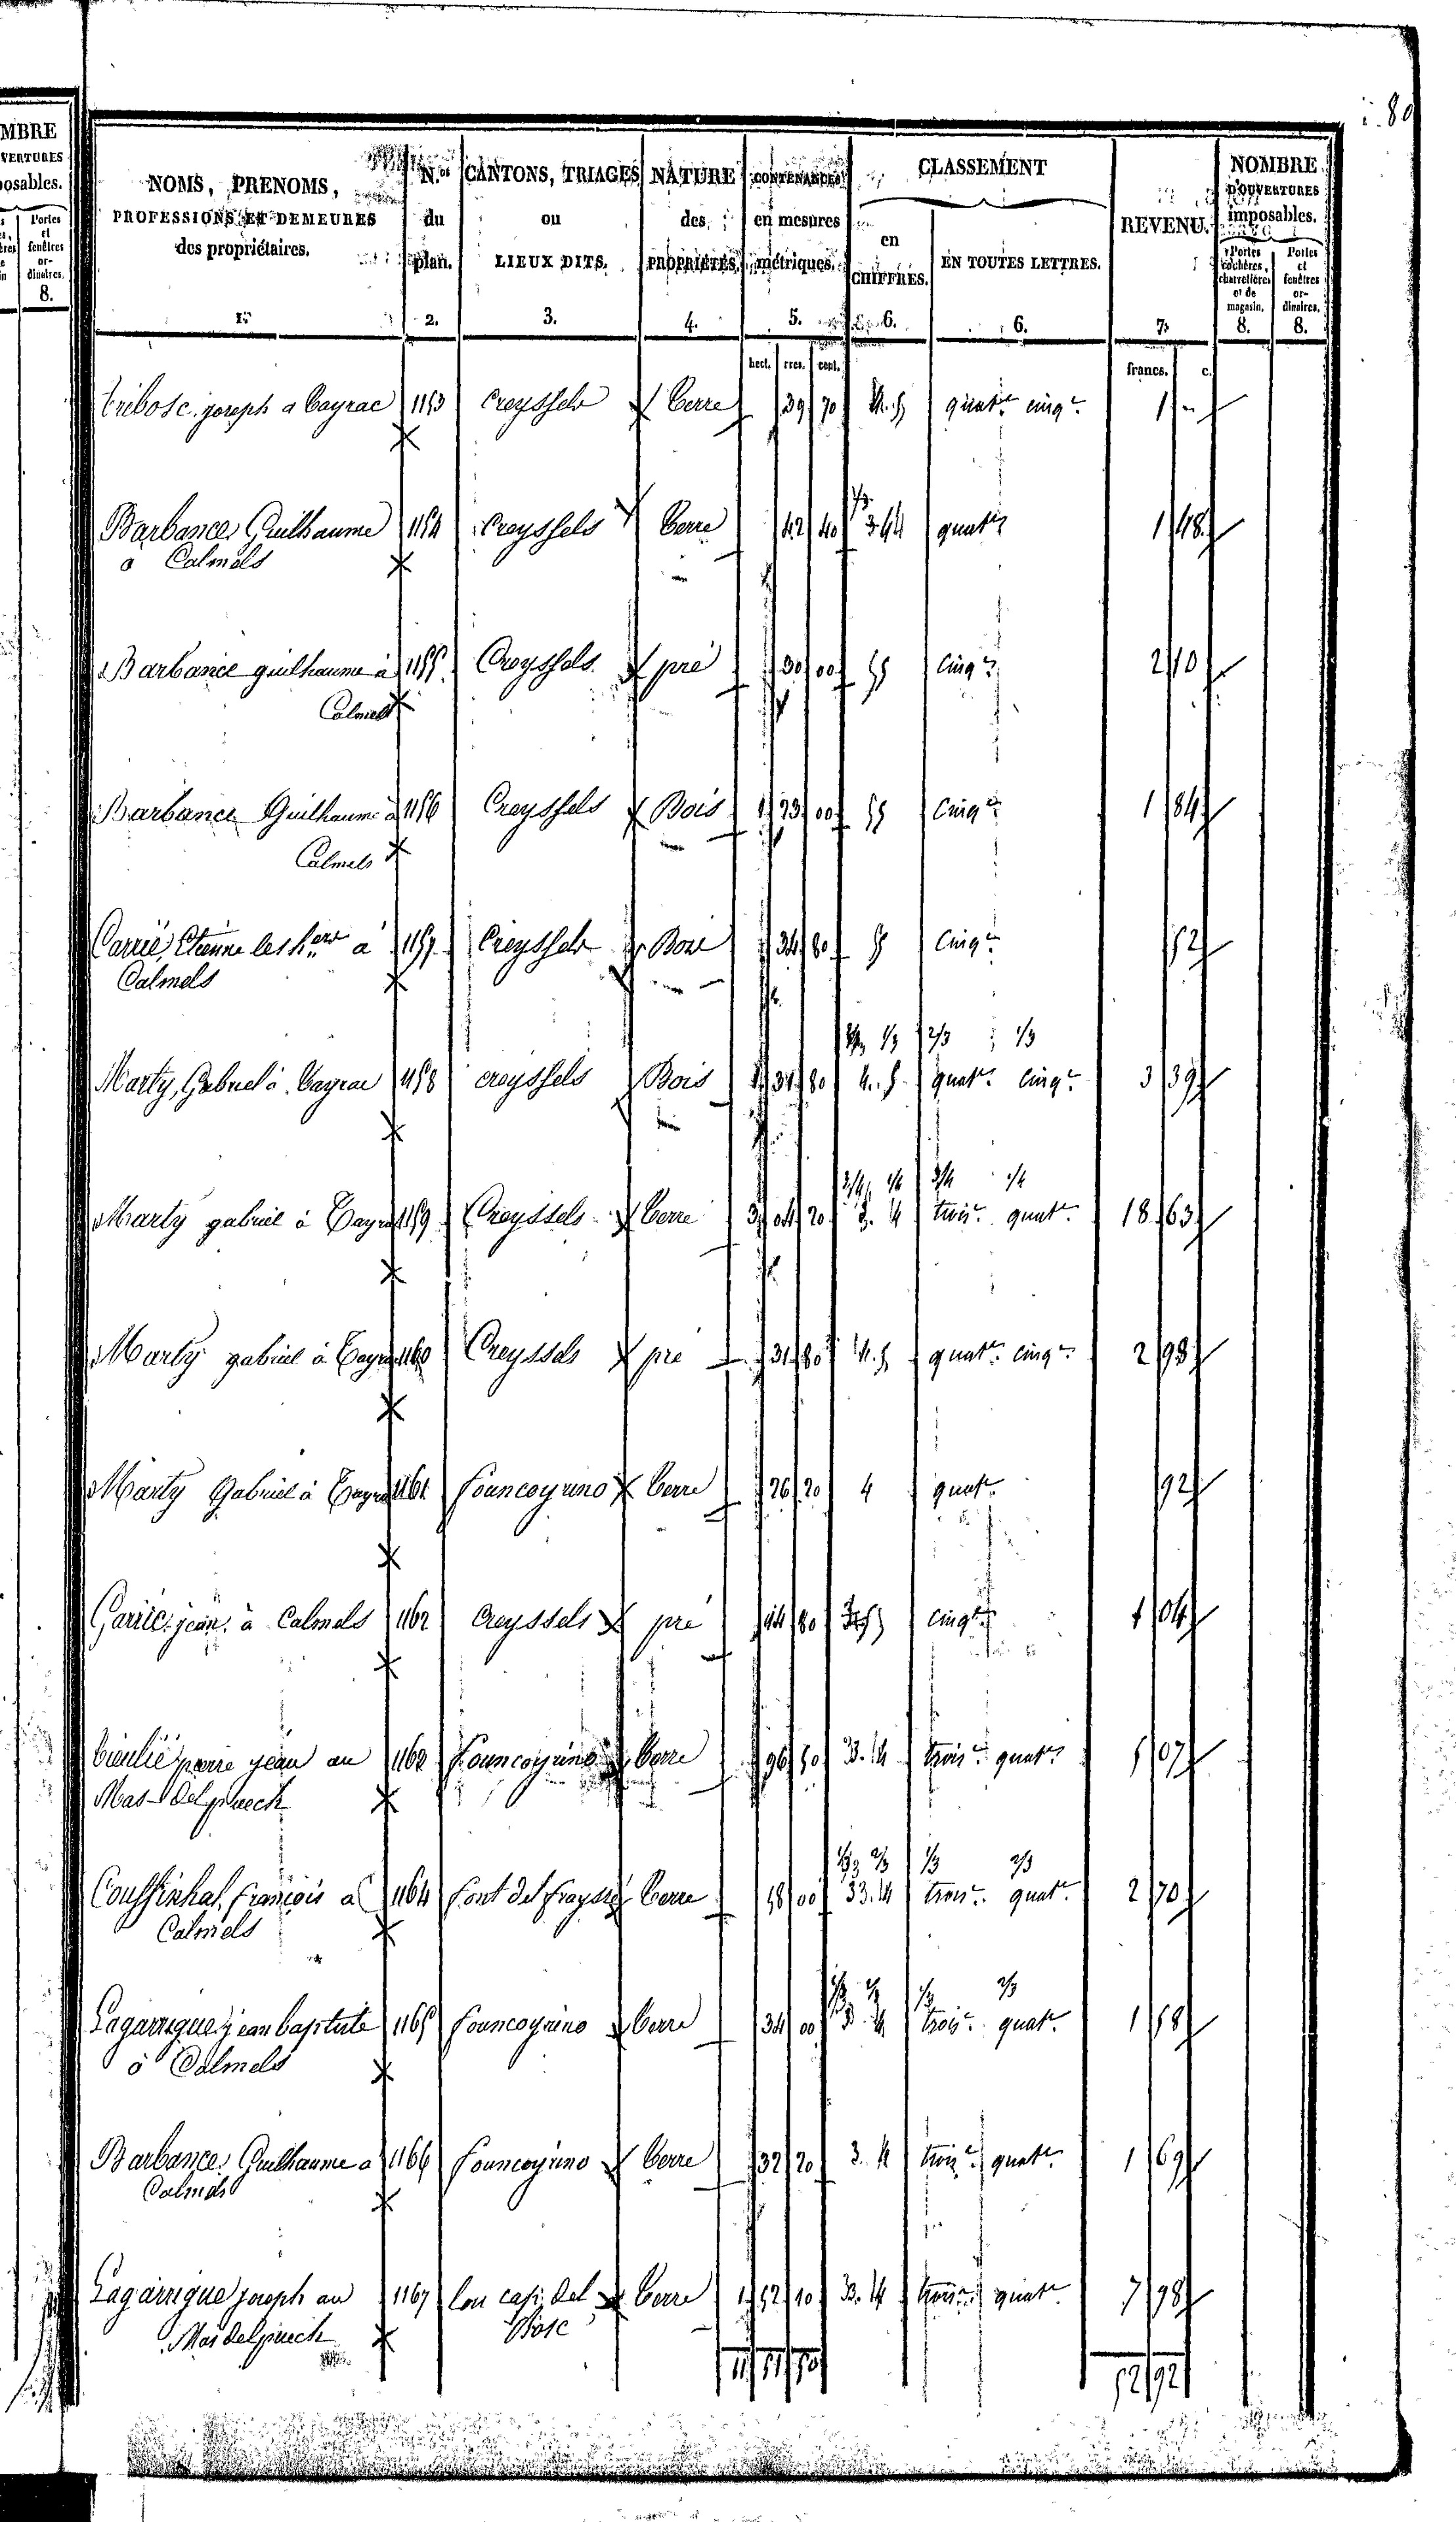 80
MBRE
VERTURES
posables.
Portes
et
fenêtres
or-
dinaires.
8.
NOMS, PRENOMS,
PROFESSIONS ET DEMEURES
des propriétaires.
N.os
du
plan.
CANTONS, TRIAGES
ou
LIEUX DITS.
NATURE
des
PROPRIÉTÉS.
CONTENANCES
en mesures
métriques.
CLASSEMENT
en
CHIFFRES.
EN TOUTES LETTRES.
REVENU.
NOMBRE
D'OUVERTURES
imposables.
Portes
cochères,
charretières
et de
magasin.
Portes
et
fenêtres
or-
dinaires.
1. 2. 3. 4. 5. 6. 6. 7. 8. 8.
hect. cent. francs. c.
joseph a Cayrac 1153 Creyssels terre 39 70 4.5 quat.e cinq.e 1 -
Barbance Guilhaume 1154 Creyssels terre 42 40 quat.e 1 48
à Calmels
Barbance guilhaume à 1155 Creyssels pré 30 00 5 cinq.e 2 10
Calmels
Barbance Guilhaume à 1156 Creyssels Bois 00 5 cinq.e 1 84
Calmels
Carrié, Etienne les h.ers à 1157 Creyssels Bois 34 80 5 cinq.e 52
Calmels
1/3 2/3 1/3
Marty, Gabriel à Cayrac 1158 creyssels Bois 31 80 4.5 quat.e cinq.e 3 39
3/4 1/4 3/4 1/4
Marty gabriel à Cayrac 1159 Creyssels terre 3 04 20 3. 4 trois.e quat.e 18 63
Marty gabriel à Cayrac 1160 Creyssels pré 31 80 4.5 quat.e cinq.e 2 98
Marty Gabriel à Cayrac 1161 founcoyrino terre 26 20 4 quat.e 92
Carrié jean à Calmels 1162 Creyssels pré 14 80 5 cinq.e 1 04
pierre jean au 1163 founcoyrino terre 96 50 3. 4 trois.e quat.e 5 07
Mas-delpuech
1/3 2/3 1/3 2/3
Couffinhal, françois à 1164 font del terre 58 00 3. 4 trois.e quat.e 2 70
Calmels
1/3 2/3 1/3 2/3
Lagarrigue jean baptiste 1165 founcoyrino terre 34 00 3. 4 trois.e quat.e 1 58
à Calmels
Barbance Guilhaume a 1166 founcoyrino terre 32 20 3. 4 trois.e quat.e 1 69
Calmels
Lagarrigue joseph au 1167 lou cap del terre 1 52 10 3. 4 trois.e quat.e 7 98
Mas delpuech Bosc
52 92